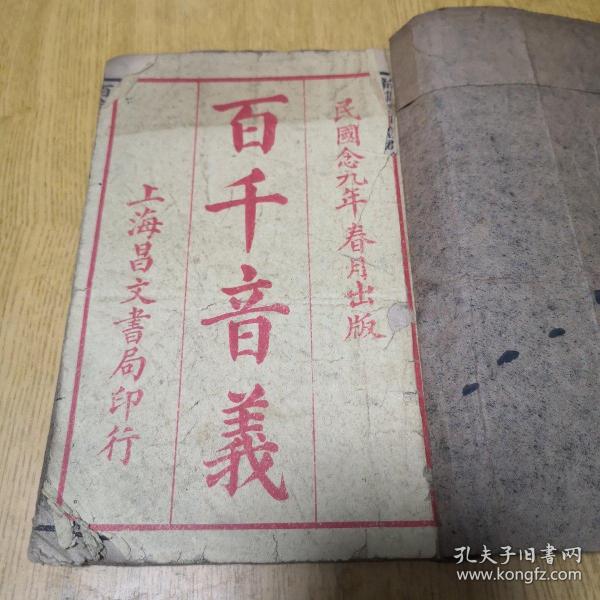 民國念九年春月出版
百千音義
上海昌文書局印行
孔夫子旧書网
www.kongfz.com